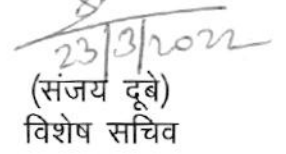 23/3/2022
(संजय दूबे)
विशेष सचिव